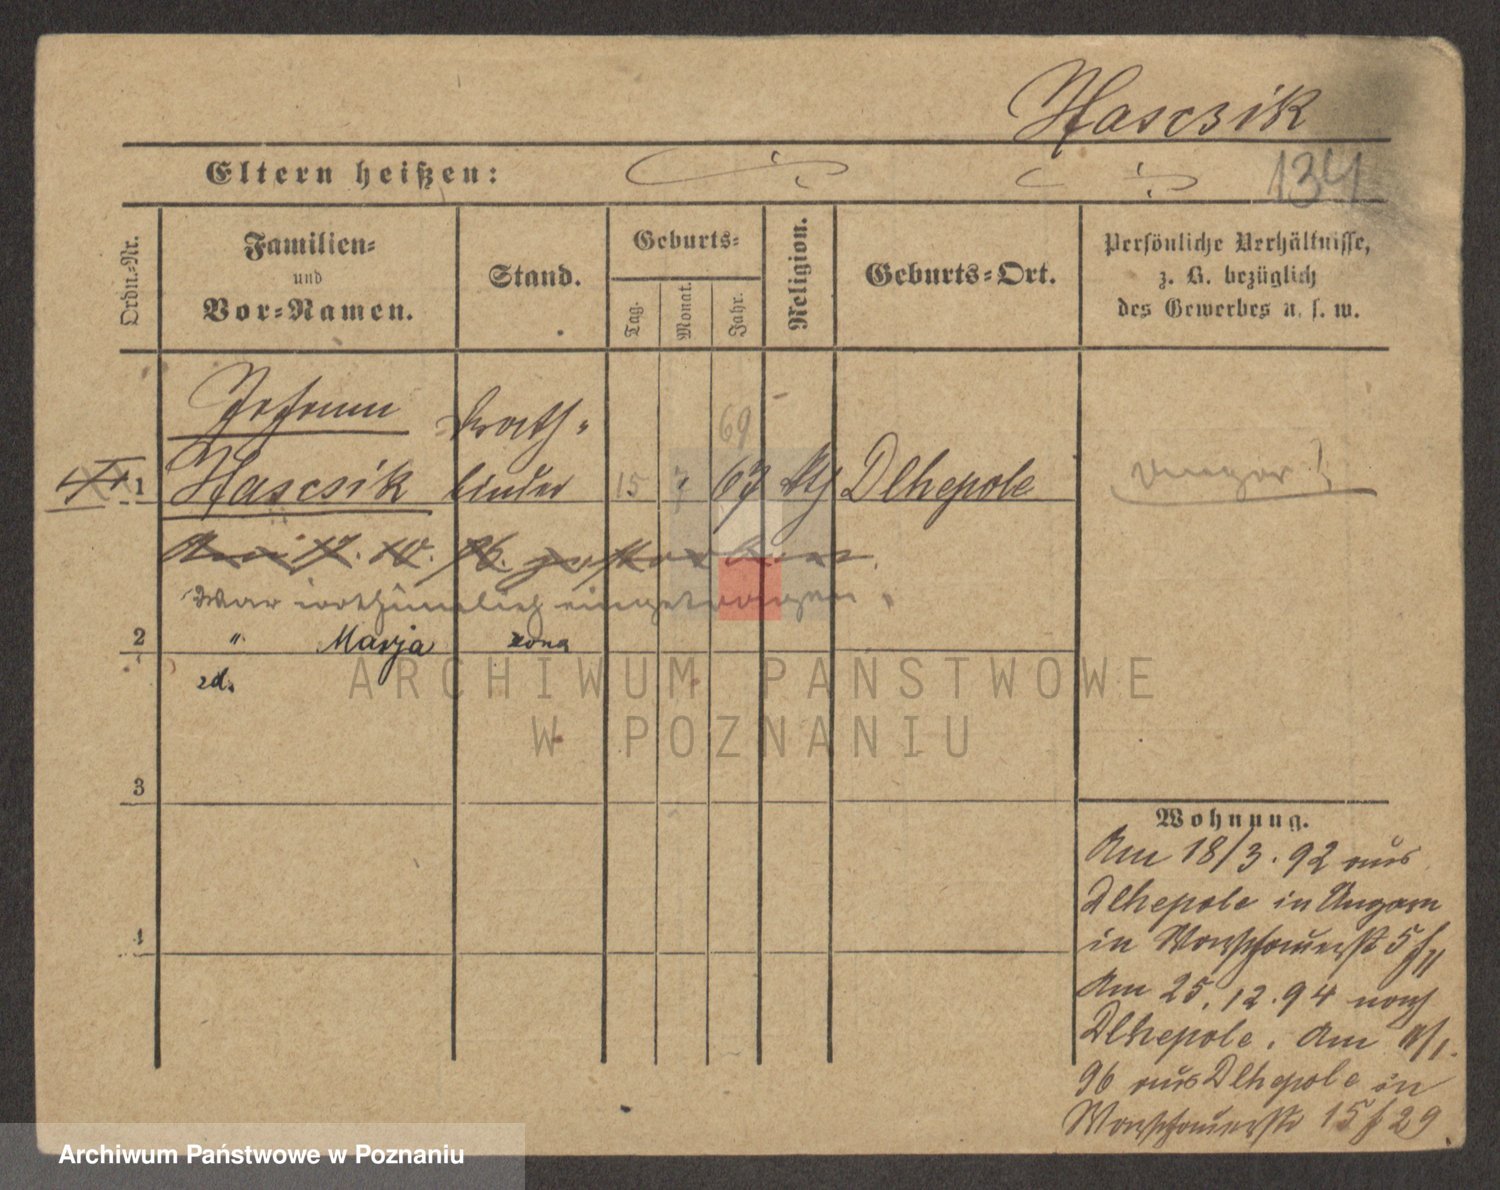 Hascsik
134
Eltern heißen:
Ordn.-Nr.
Familien-
und
Vor-Namen.
Stand.
Geburts-
Tag.
Monat.
Jahr.
Religion.
Geburts-Ort.
Persönliche Verhältnisse,
z. B. bezüglich
des Gewerbes u. s. w.
Johann Drath-
69
1 Hascsik binder 15 7 67 Dlhepole
Ungar!
Am 17. 10. 96. gestorben.
War irrthümlich eingetragen.
2 " Marja żona
zd.
3
4
Wohnung.
Am 18/3. 92 aus
Dlhepole in Ungarn
in Warschauerst 5
Am 25. 12. 94 nach
Dlhepole. Am
96 aus Dlhepole in
Warschauerstr 15 f 29
ARCHIWUM PAŃSTWOWE
W POZNANIU
Archiwum Państwowe w Poznaniu